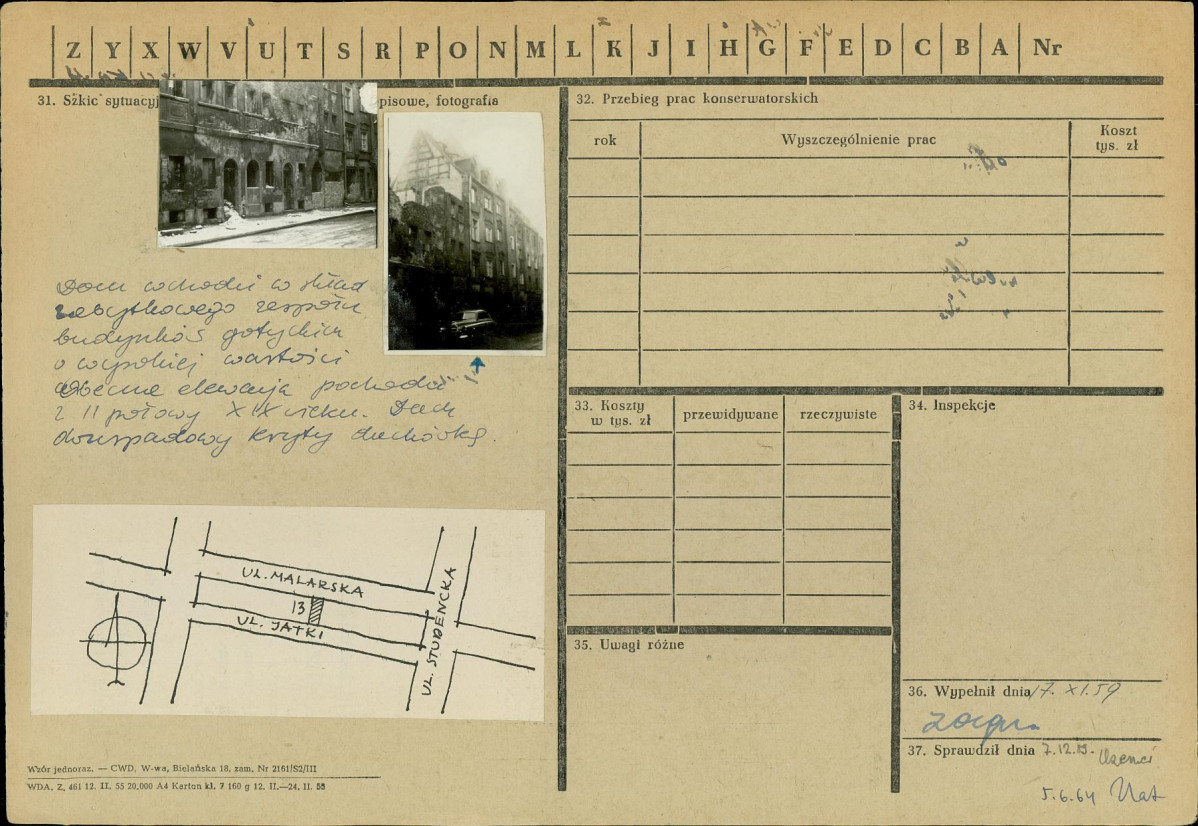 Z Y X W V U T S R P O N M L K J I H G F E D C B A Nr
31. Szkic sytuacyj
pisowe, fotografia
Dom wchodzi w skład
zabytkowego zespołu
budynków gotyckich
o wysokiej wartości
obecna elewacja pochodzi
z II połowy XIX wieku. Dach
dwuspadowy kryty dachówką.
UL. MALARSKA
13
UL. JATKI
UL. STUDENCKA
Wzór jednoraz. — CWD, W-wa, Bielańska 18, zam. Nr 2161/S2/III
WDA. Z. 461 12. II. 55 20.000 A4 Karton kl. 7 160 g 12. II.—24. II. 55
32. Przebieg prac konserwatorskich
rok
Wyszczególnienie prac
Koszt
tys. zł
33. Koszty
w tys. zł
przewidywane
rzeczywiste
34. Inspekcje
35. Uwagi różne
36. Wypełnił dnia 17. XI. 59
37. Sprawdził dnia 7.12.
5.6.64